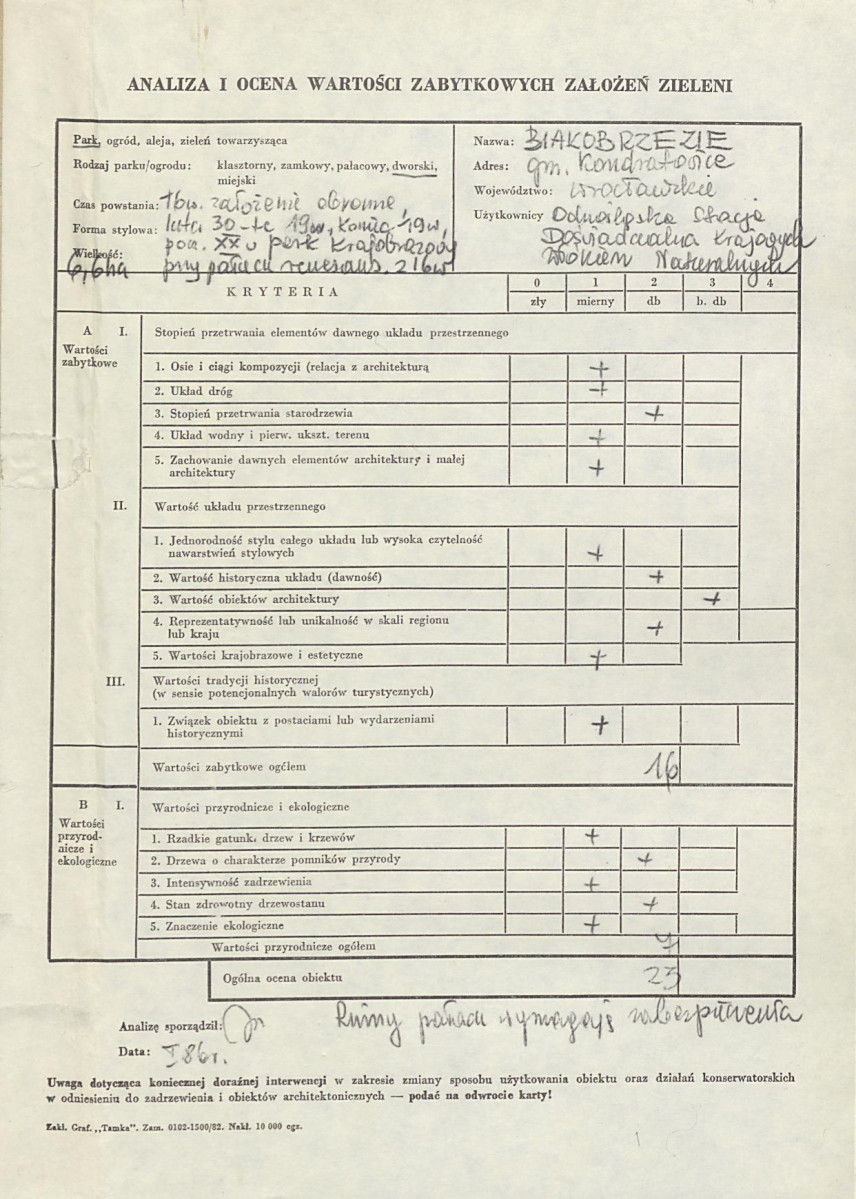 ANALIZA I OCENA WARTOŚCI ZABYTKOWYCH ZAŁOŻEŃ ZIELENI
Park, ogród, aleja, zieleń towarzysząca
Rodzaj parku/ogrodu: klasztorny, zamkowy, pałacowy, dworski,
miejski
Czas powstania: 16w. założenie obronne,
Forma stylowa: lata 30-te 19w, koniec 19w,
pocz. XX w park krajobrazowy
Wielkość:
6,6ha przy pałacu renesans. z 16w
Nazwa: BIAŁOBRZEZIE
Adres: gm. Kondratowice
Województwo: wrocławskie
Użytkownicy Stacja
Doświadczalna Krajowych
Włókien Naturalnych
KRYTERIA
0 1 2 3 4
zły mierny db b. db
A I. Stopień przetrwania elementów dawnego układu przestrzennego
Wartości
zabytkowe
1. Osie i ciągi kompozycji (relacja z architekturą +
2. Układ dróg +
3. Stopień przetrwania starodrzewia +
4. Układ wodny i pierw. ukszt. terenu +
5. Zachowanie dawnych elementów architektury i małej
architektury +
II. Wartość układu przestrzennego
1. Jednorodność stylu całego układu lub wysoka czytelność
nawarstwień stylowych +
2. Wartość historyczna układu (dawność) +
3. Wartość obiektów architektury +
4. Reprezentatywność lub unikalność w skali regionu
lub kraju +
5. Wartości krajobrazowe i estetyczne +
III. Wartości tradycji historycznej
(w sensie potencjonalnych walorów turystycznych)
1. Związek obiektu z postaciami lub wydarzeniami
historycznymi +
Wartości zabytkowe ogółem 16
B I. Wartości przyrodnicze i ekologiczne
Wartości
przyrod-
nicze i
ekologiczne
1. Rzadkie gatunki drzew i krzewów +
2. Drzewa o charakterze pomników przyrody +
3. Intensywność zadrzewienia +
4. Stan zdrowotny drzewostanu +
5. Znaczenie ekologiczne +
Wartości przyrodnicze ogółem 7
Ogólna ocena obiektu 23
Analizę sporządził: Ruiny pałacu wymagają zabezpieczenia
Data: I 86r.
Uwaga dotycząca koniecznej doraźnej interwencji w zakresie zmiany sposobu użytkowania obiektu oraz działań konserwatorskich
w odniesieniu do zadrzewienia i obiektów architektonicznych — podać na odwrocie karty!
Zakł. Graf. „Tamka". Zam. 0102-1500/82. Nakł. 10 000 egz.